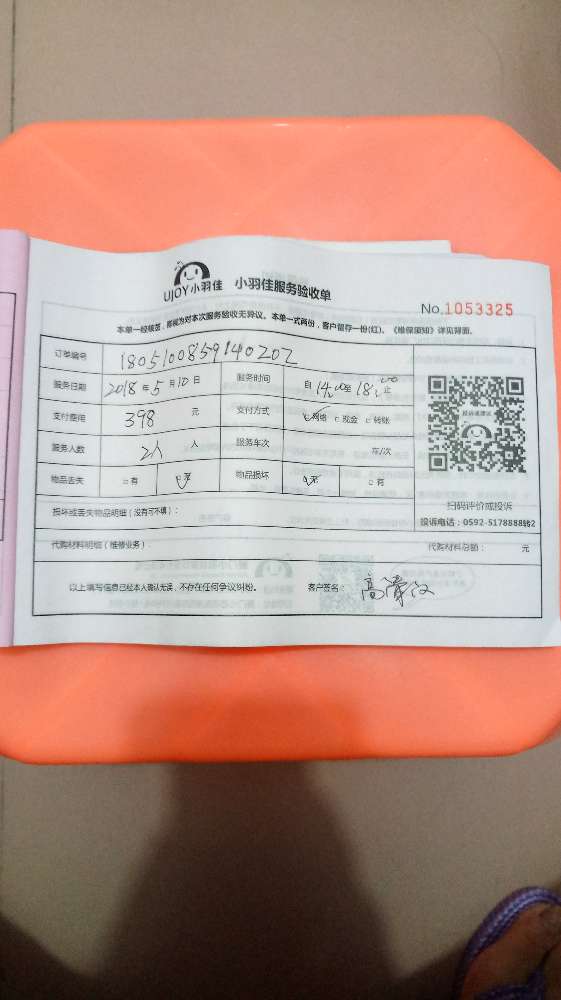 UJOY小羽佳 小羽佳服务验收单
No.1053325
本单一经核签，即视为对本次服务验收无异议。本单一式两份，客户留存一份(红)。《维保须知》详见背面。
订单编号 180510085914020Z
服务日期 2018年5月10日 服务时间 自14:00至18:00止
支付费用 398 元 支付方式 网络 现金 转账
服务人数 2人 人 服务车次 车/次
物品丢失 有 无 物品损坏 无 有
扫码评价或投诉
损坏或丢失物品明细（没有可不填）：
投诉电话：0592-5178888转2
代购材料明细（维修业务）： 代购材料总额： 元
以上填写信息已经本人确认无误，不存在任何争议纠纷。 客户签名：高